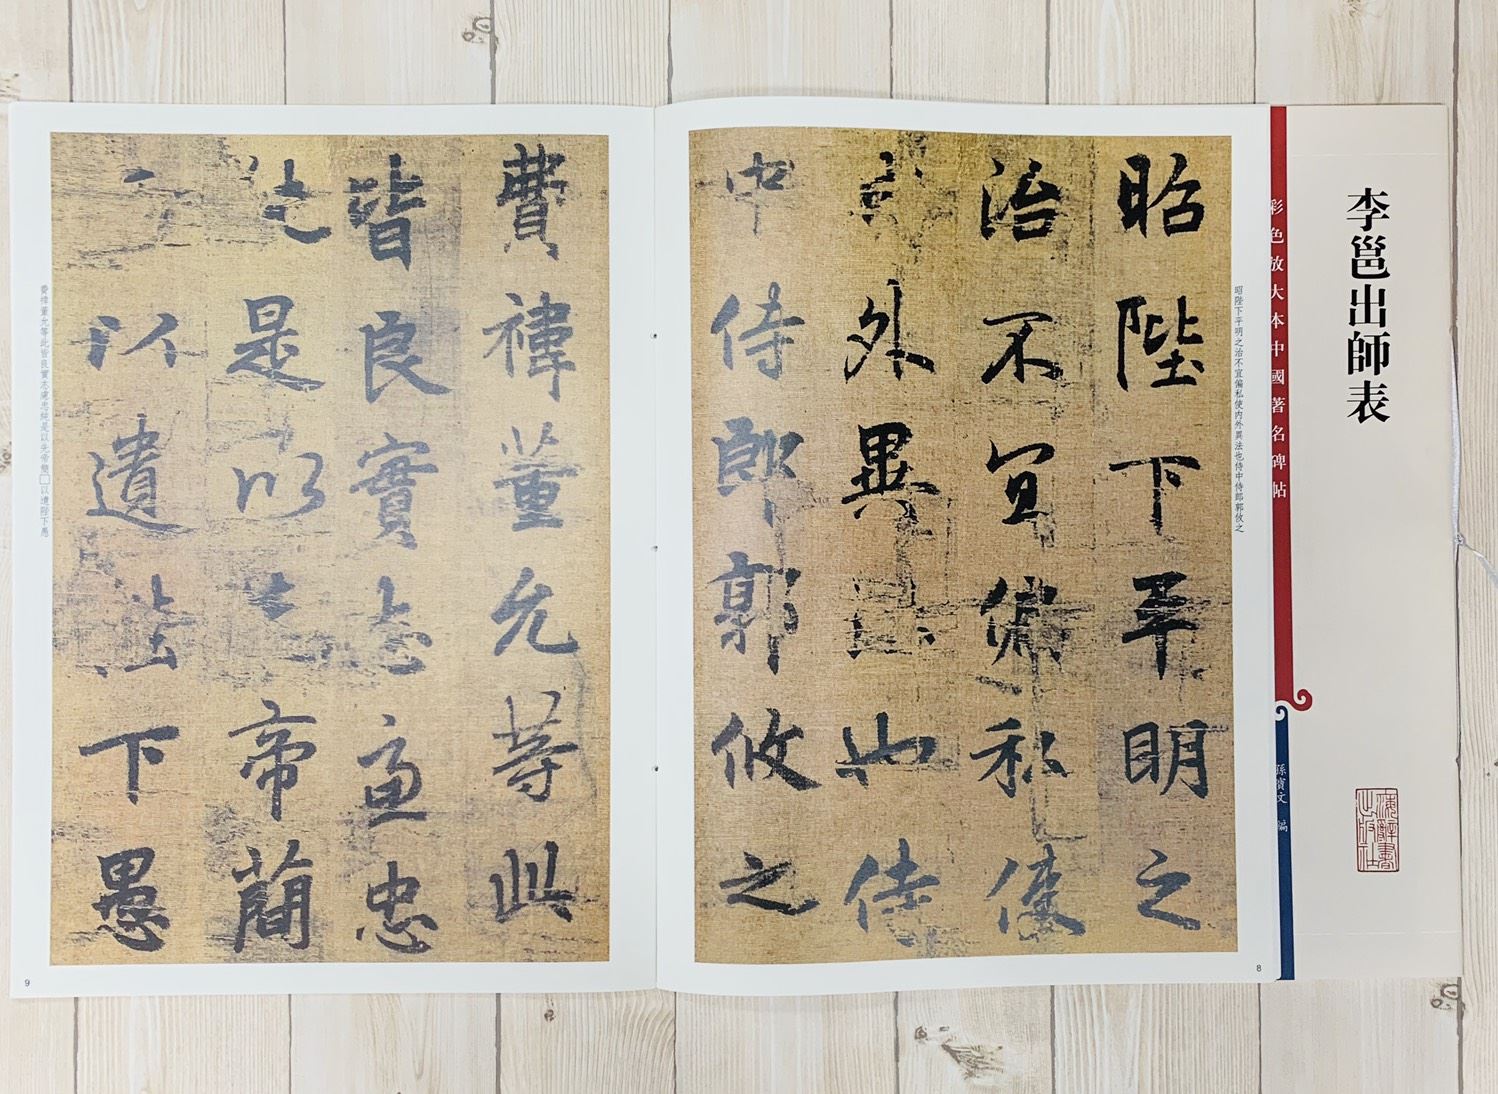 李邕出師表
彩色放大本中國著名碑帖
孫寶文 編
海辭書出版社
昭陛下平明之治不宜偏私使內外異法也侍中侍郎郭攸之
昭陛下平明之
治不宜偏私使
內外異法也侍
中侍郎郭攸之
8
費禕董允等此
皆良實志慮忠
純是以先帝蕳
以遺陛下愚
費禕董允等此皆良實志慮忠純是以先帝蕳□以遺陛下愚
9